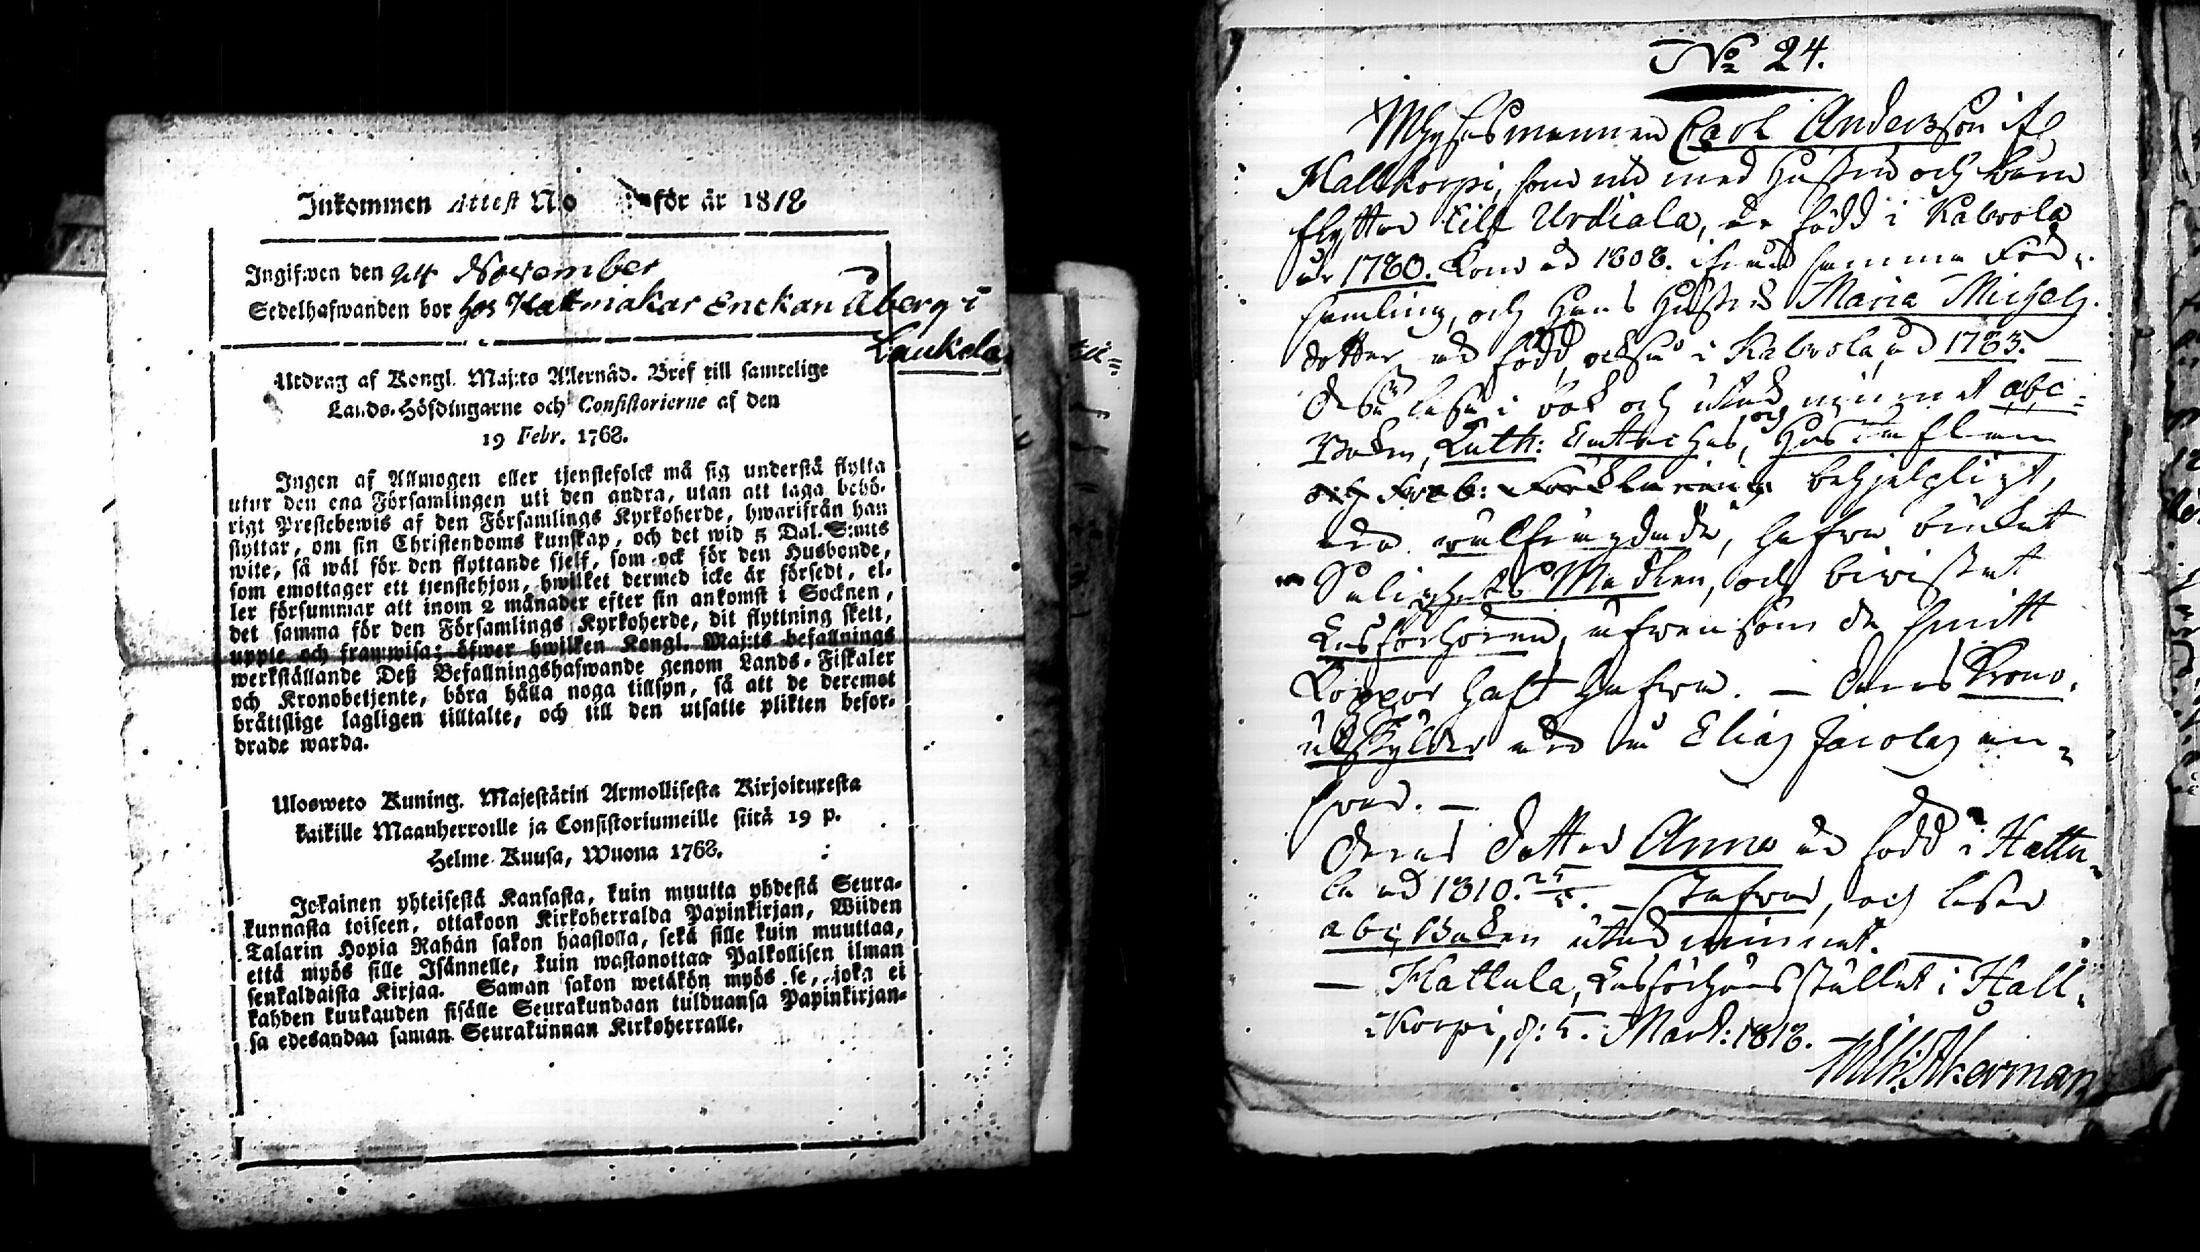 Inkommen Attest No för år 1818
Ingifwen den 24 November
Sedelhafwanden bor hos Hattmakar Enckan Åberg i
Laukela
Utdrag af Kongl. Maj:ts Allernåd. Bref till samtelige
Lands-Höfdingarne och Consistorierne af den
19 Febr. 1768.
Ingen af Allmogen eller tjenstefolck må sig understå flytta
utur den ena Församlingen uti den andra, utan att taga behö-
rigt Prestebewis af den Församlings Kyrkoherde, hwarifrån han
flyttar, om sin Christendoms kunskap, och det wid 5 Dal. S:mts
wite, så wäl för den flyttande sjelf, som ock för den Husbonde,
som emottager ett tjenstehjon, hwilket dermed icke är försedt, el-
ler försummar att inom 2 månader efter sin ankomst i Socknen,
det samma för den Församlings Kyrkoherde, dit flyttning skett,
uppte och framwisa; öfwer hwilken Kongl. Maj:ts befallnings
werkställande Deß Befallningshafwande genom Lands-Fiskaler
och Kronobetjente, böra hålla noga tillsyn, så att de deremot
bråttslige lagligen tilltalte, och till den utsatte plikten befor-
drade warda.
Ulosweto Kuning. Majestätin Armollisesta Kirjoituxesta
kaikille Maanherroille ja Consistoriumeille siitä 19 p.
Helme Kuusa, Wuona 1768.
Jokainen yhteisestä Kansasta, kuin muutta yhdestä Seura-
kunnasta toiseen, ottakoon Kirkoherralda Papinkirjan, Wiiden
Talarin Hopia Rahan sakon haastolla, sekä sille kuin muuttaa,
että myös sille Isännelle, kuin wastanottaa Palkollisen ilman
senkaldaista Kirjaa. Saman sakon wetäkön myös se, joka ei
kahden kuukauden sisälle Seurakundaan tulduansa Papinkirjan-
sa edesandaa saman Seurakunnan Kirkoherralle.
No 24.
Carl Andersson
Hallkorpi, som nu med hustru och barn
flyttar till Urdiala, är född i Kalvola
år 1780. Kom åd 1808. ifrån samma För-
samling, och Hans Hustru Maria Michels-
dotter är född också i Kalvola åd 1783. —
läsa i bok och utur minnet abc-
Boken, Luth: Cateches, och Hustaflan
behjelpligt,
äro wälfrägdade, hafva brukat
Salighets Medlen, och bivistat
Läsförhören, äfven som de smitt
Koppor haft hafva. — Deras Krono-
utskylder Elias Jacobs an-
svar. —
Deras dotter Anna är född i Hattu-
la åd 1810. — Stafvar, och läser
abc Boken utur minnet.
— Hattula, Läsförhörs stället i Hall-
korpi, d: 5. Mart: 1818.
Åkerman